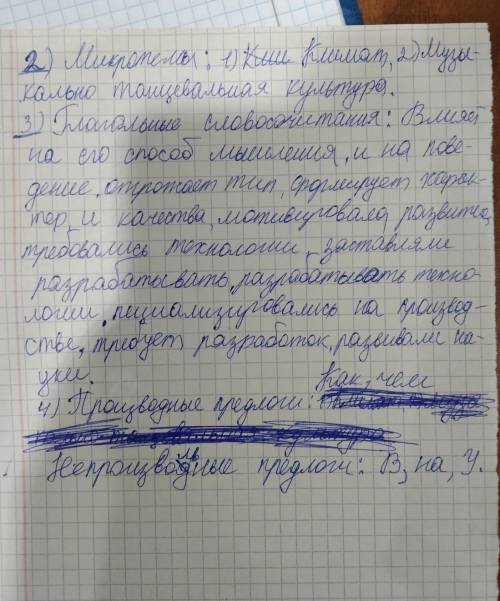 2) Микротемы: 1) Климат, 2) Музы-
кально танцевальная культура.
3) Глагольные словосочитания: Влияет
на его способ мышления, и на пове-
дение, отротжает тип, формирует харак-
тер, и качества, мотивировала развитие,
требовались технологии, заставляли
разрабатывать, разрабатывать техно-
логии, пециализировались на производ-
стве, требует разработок, развивали на-
уки.
Как, чем
4) Производные предлоги:
Непроизводные предлоги: В, на, У.